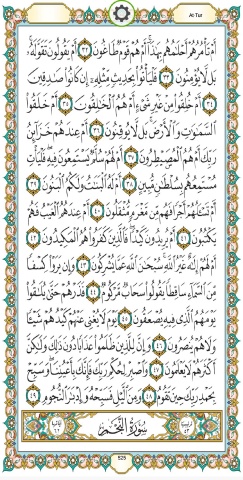 At-Tur
أَمْ تَأْمُرُهُمْ أَحْلَٰمُهُم بِهَٰذَآ ۚ أَمْ هُمْ قَوْمٌ طَاغُونَ ٣٢ أَمْ يَقُولُونَ تَقَوَّلَهُۥ ۚ
بَل لَّا يُؤْمِنُونَ ٣٣ فَلْيَأْتُوا۟ بِحَدِيثٍ مِّثْلِهِۦٓ إِن كَانُوا۟ صَٰدِقِينَ
٣٤ أَمْ خُلِقُوا۟ مِنْ غَيْرِ شَىْءٍ أَمْ هُمُ ٱلْخَٰلِقُونَ ٣٥ أَمْ خَلَقُوا۟
ٱلسَّمَٰوَٰتِ وَٱلْأَرْضَ ۚ بَل لَّا يُوقِنُونَ ٣٦ أَمْ عِندَهُمْ خَزَآئِنُ
رَبِّكَ أَمْ هُمُ ٱلْمُصَۣيْطِرُونَ ٣٧ أَمْ لَهُمْ سُلَّمٌ يَسْتَمِعُونَ فِيهِ ۖ فَلْيَأْتِ
مُسْتَمِعُهُم بِسُلْطَٰنٍ مُّبِينٍ ٣٨ أَمْ لَهُ ٱلْبَنَٰتُ وَلَكُمُ ٱلْبَنُونَ ٣٩
أَمْ تَسْـَٔلُهُمْ أَجْرًا فَهُم مِّن مَّغْرَمٍ مُّثْقَلُونَ ٤٠ أَمْ عِندَهُمُ ٱلْغَيْبُ فَهُمْ
يَكْتُبُونَ ٤١ أَمْ يُرِيدُونَ كَيْدًا ۖ فَٱلَّذِينَ كَفَرُوا۟ هُمُ ٱلْمَكِيدُونَ ٤٢
أَمْ لَهُمْ إِلَٰهٌ غَيْرُ ٱللَّهِ ۚ سُبْحَٰنَ ٱللَّهِ عَمَّا يُشْرِكُونَ ٤٣ وَإِن يَرَوْا۟ كِسْفًا
مِّنَ ٱلسَّمَآءِ سَاقِطًا يَقُولُوا۟ سَحَابٌ مَّرْكُومٌ ٤٤ فَذَرْهُمْ حَتَّىٰ يُلَٰقُوا۟
يَوْمَهُمُ ٱلَّذِى فِيهِ يُصْعَقُونَ ٤٥ يَوْمَ لَا يُغْنِى عَنْهُمْ كَيْدُهُمْ شَيْـًٔا
وَلَا هُمْ يُنصَرُونَ ٤٦ وَإِنَّ لِلَّذِينَ ظَلَمُوا۟ عَذَابًا دُونَ ذَٰلِكَ وَلَٰكِنَّ
أَكْثَرَهُمْ لَا يَعْلَمُونَ ٤٧ وَٱصْبِرْ لِحُكْمِ رَبِّكَ فَإِنَّكَ بِأَعْيُنِنَا ۖ وَسَبِّحْ
بِحَمْدِ رَبِّكَ حِينَ تَقُومُ ٤٨ وَمِنَ ٱلَّيْلِ فَسَبِّحْهُ وَإِدْبَٰرَ ٱلنُّجُومِ ٤٩
سُورَةُ النَّجْمِ
525